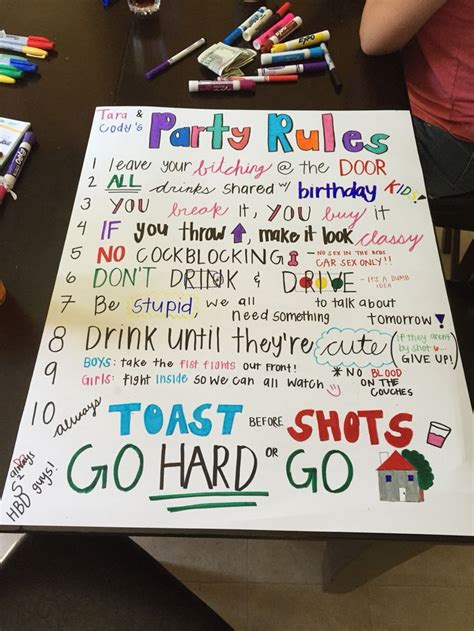 Tara &
Cody's Party Rules
1 leave your bitching @ the DOOR
2 ALL drinks shared w/ birthday KIDS!
3 YOU break it, YOU buy it
4 IF you throw ↑, make it look classy
5 NO COCKBLOCKING! - NO SEX IN THE BEDS
CAR SEX ONLY!!
6 DON'T DRINK & DRIVE - IT'S A DUMB
IDEA
7 Be stupid, we all need something to talk about tomorrow!
8 Drink until they're cute (if they aren't
by shot 6...
GIVE UP!)
9 BOYS: take the fist fights out front!
GIRLS: fight inside so we can all watch
* NO BLOOD
ON THE
COUCHES
10 always TOAST BEFORE SHOTS
GO HARD or GO
HBD
guys!